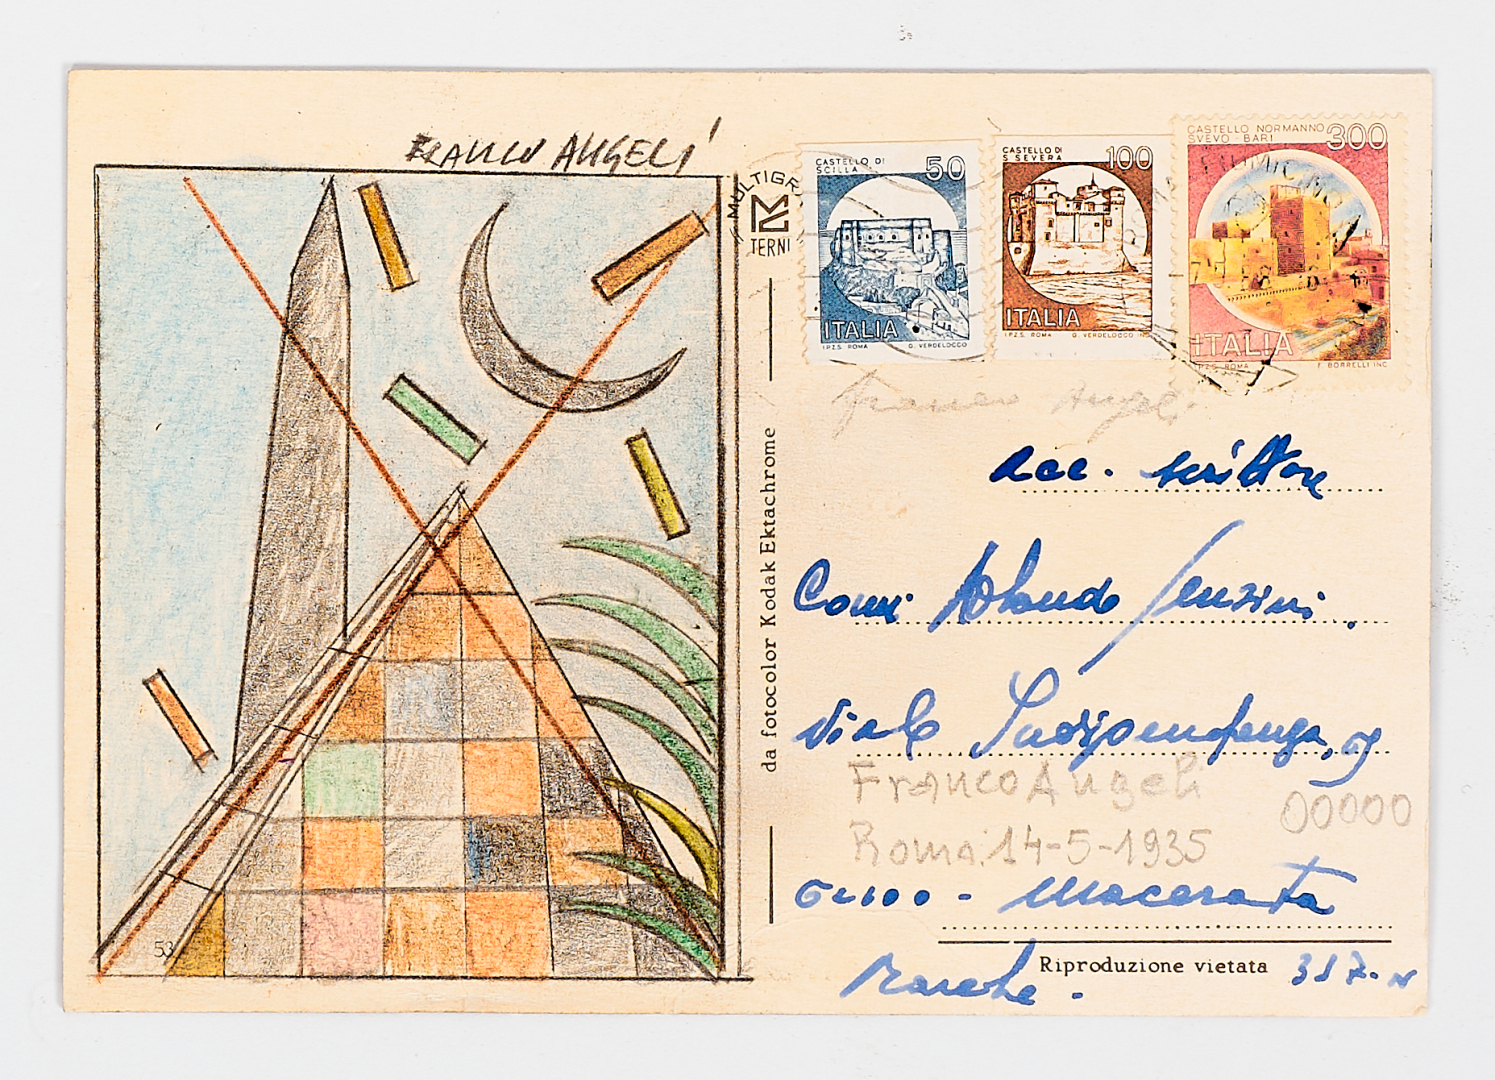 FRANCO ANGELI
MULTIGR
TERNI
CASTELLO DI
SCILLA
50
ITALIA
I.P.Z.S. ROMA
G. VERDELOCCO
CASTELLO DI
S. SEVERA
100
ITALIA
I.P.Z.S. ROMA
G. VERDELOCCO INC
CASTELLO NORMANNO
SVEVO - BARI
300
ITALIA
I.P.Z.S. ROMA
F. BORRELLI INC.
Franco Angeli
da fotocolor Kodak Ektachrome
scrittore
Viale Indipendenza,
Franco Angeli
00000
Roma: 14-5-1935
62100 - Macerata
53
Riproduzione vietata
Marche.